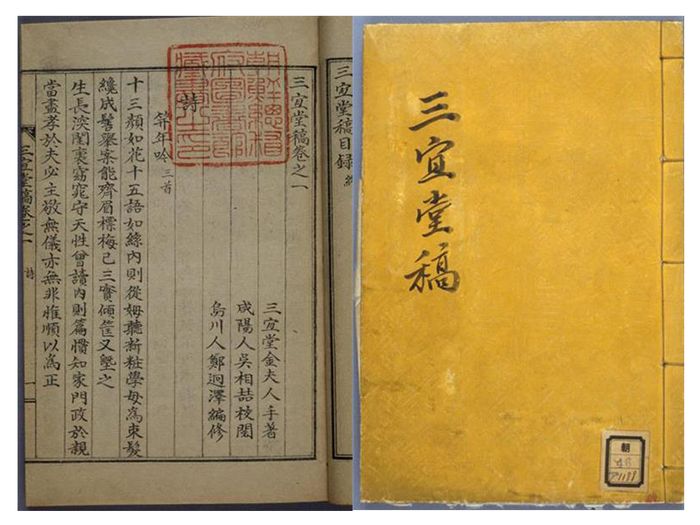 三宜堂稿
朝
三宜堂稿目錄 終
朝鮮總督
府圖書館
藏書之印
三宜堂稿卷之一
三宜堂金夫人手著
咸陽人吳相喆校閱
烏川人鄭迥澤編修
詩
笄年吟 三首
十三顏如花十五語如絲內則從姆聽新粧學母爲束髮
纔成髻舉案能齊眉標梅已三實傾筐又塈之
生長深閨裏窈窕守天性曾讀內則篇慣知家門政於親
當盡孝於夫必主敬無儀亦無非惟順以爲正
三宜堂稿卷之一 詩